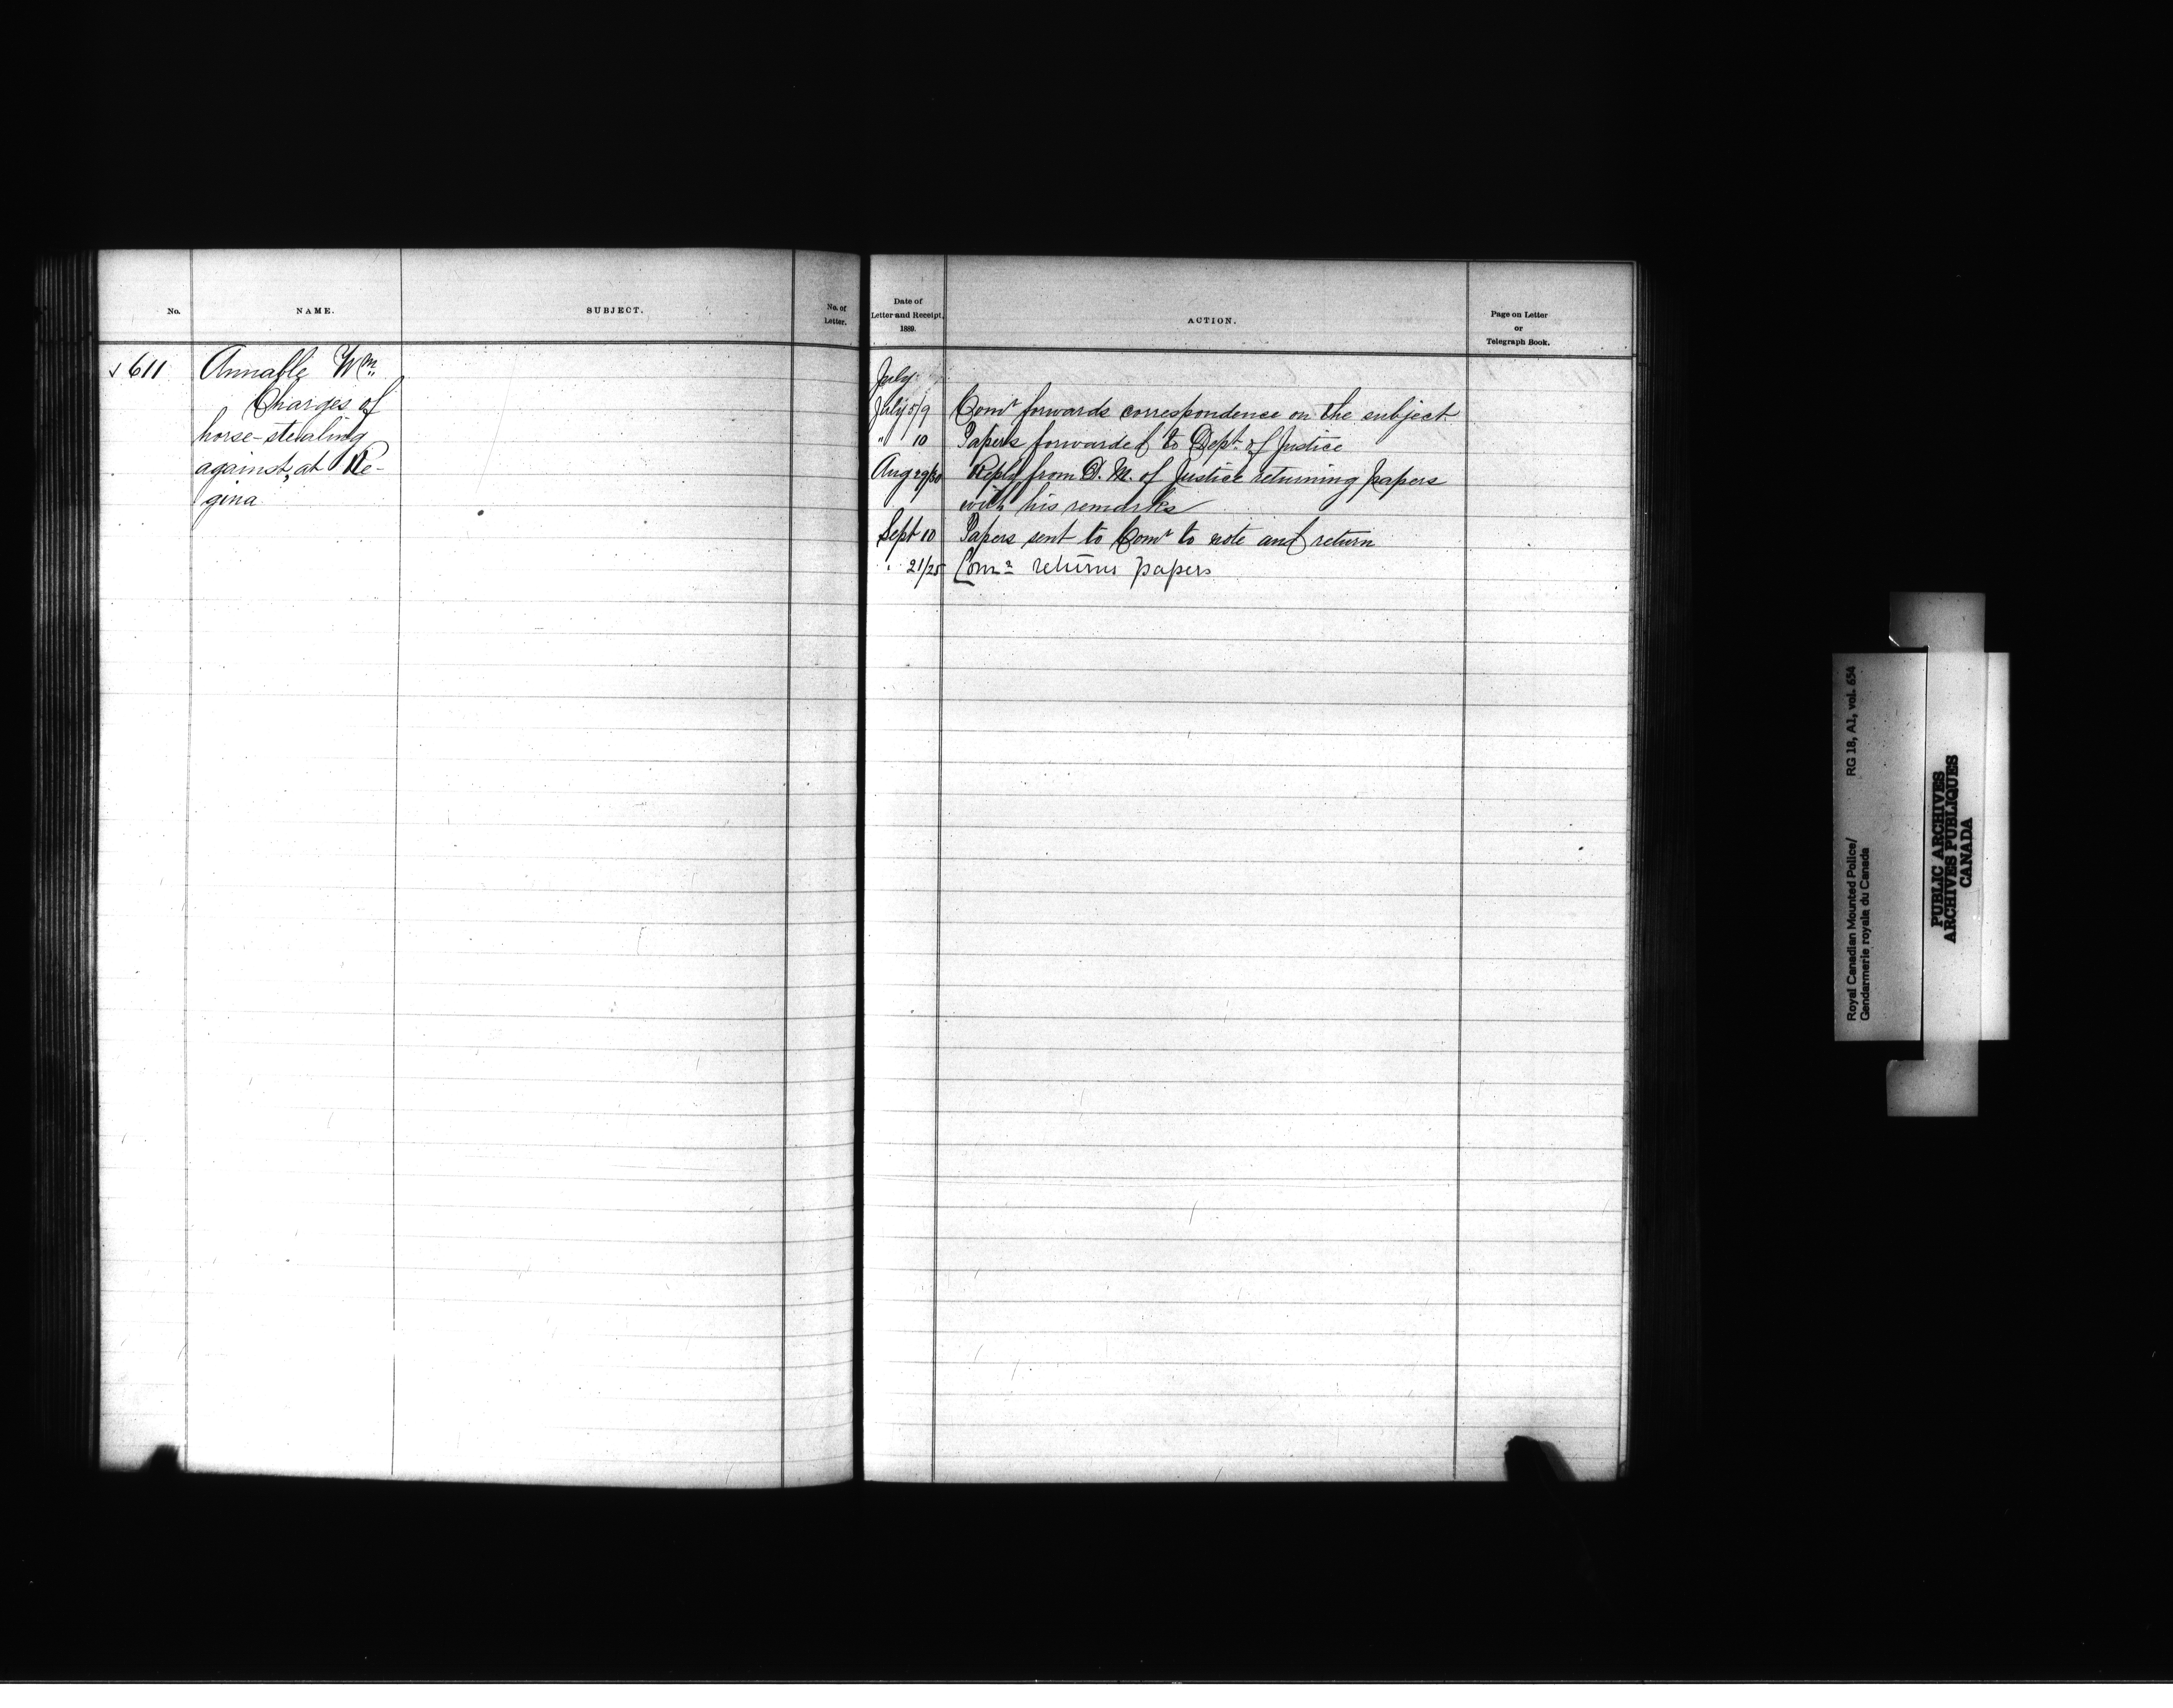 No.
NAME.
SUBJECT.
No. of
Letter.
✓ 611
Annable Wm.
Charges of
horse-stealing
against, at Re-
gina
Date of
Letter and Receipt,
1889.
ACTION.
Page on Letter
or
Telegraph Book.
July
July 5/9 Comr forwards correspondence on the subject.
" 10 Papers forwarded to Dept. of Justice
Aug 29/30 Reply from D. M. of Justice returning papers
with his remarks
Sept 10 Papers sent to Comr to note and return
" 21/25 Comr returns papers
Royal Canadian Mounted Police/
Gendarmerie royale du Canada
RG 18, A1, vol. 654
PUBLIC ARCHIVES
ARCHIVES PUBLIQUES
CANADA